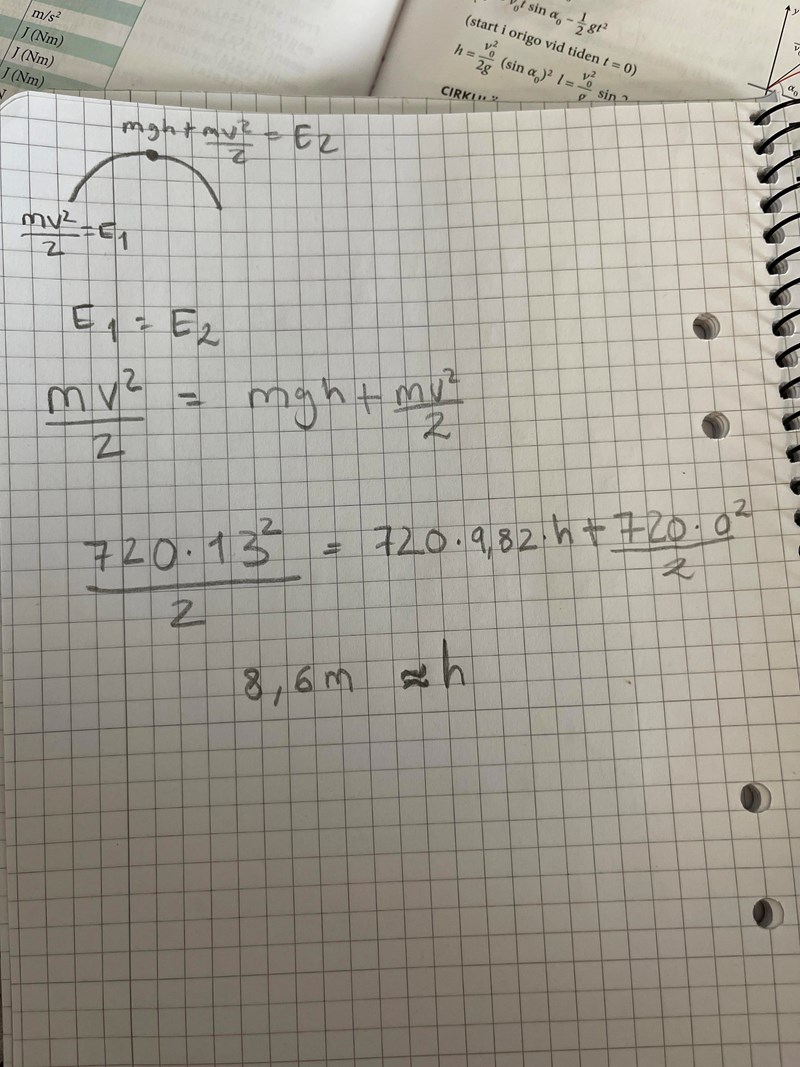 m/s²
J (Nm)
J (Nm)
J (Nm)
t sin α₀ − 1/2 gt²
(start i origo vid tiden t = 0)
h = v₀²/2g (sin α₀)² l = v₀²/g sin
y
α₀
mgh + mv²/2 = E2
mv²/2 = E1
E1 = E2
mv²/2 = mgh + mv²/2
720·13²/2 = 720·9,82·h + 720·0²/2
8,6m ≈ h